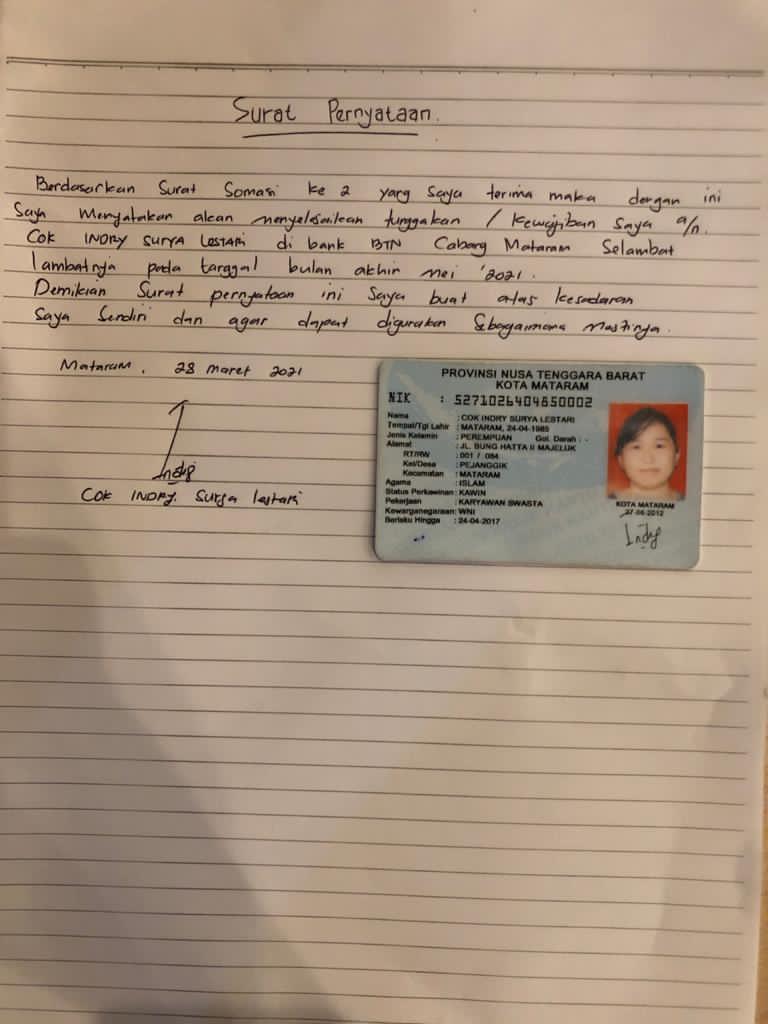 Surat Pernyataan.
Berdasarkan Surat Somasi ke 2 yang saya terima maka dengan ini
Saya Menyatakan akan menyelesaikan tunggakan / kewajiban saya a/n.
Cok INDRY SURYA LESTARI di bank BTN Cabang Mataram Selambat
lambatnya pada tanggal bulan akhir mei '2021.
Demikian Surat pernyataan ini Saya buat atas kesadaran
Saya Sendiri dan agar dapat digunakan Sebagaimana Mastinya.
Mataram, 28 maret 2021
Indry
Cok INDRY. Surya lestari
PROVINSI NUSA TENGGARA BARAT
KOTA MATARAM
NIK : 5271026404850002
Nama : COK INDRY SURYA LESTARI
Tempat/Tgl Lahir : MATARAM, 24-04-1985
Jenis Kelamin : PEREMPUAN Gol. Darah : -
Alamat : JL. BUNG HATTA II MAJELUK
RT/RW : 001 / 084
Kel/Desa : PEJANGGIK
Kecamatan : MATARAM
Agama : ISLAM
Status Perkawinan: KAWIN
Pekerjaan : KARYAWAN SWASTA
Kewarganegaraan: WNI
Berlaku Hingga : 24-04-2017
KOTA MATARAM
27-06-2012
Indry